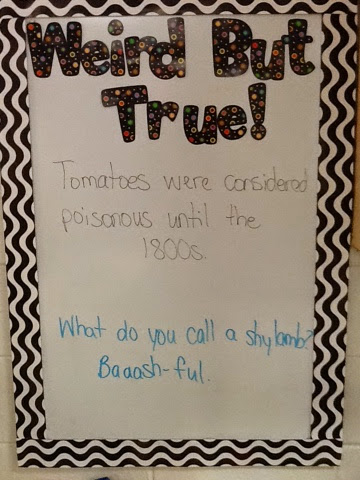 Weird But
True!
Tomatoes were considered
poisonous until the
1800s.
What do you call a shy lamb?
Baaash-ful.